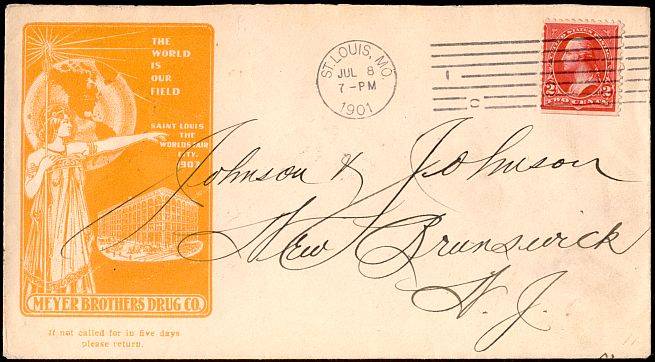 THE
WORLD
IS
OUR
FIELD
SAINT LOUIS
THE
WORLDS FAIR
CITY.
1903
MEYER BROTHERS DRUG CO.
If not called for in five days
please return.
ST. LOUIS, MO.
JUL 8
7-PM
1901
2 2
TWO CENTS
Johnson & Johnson
New Brunswick
N. J.